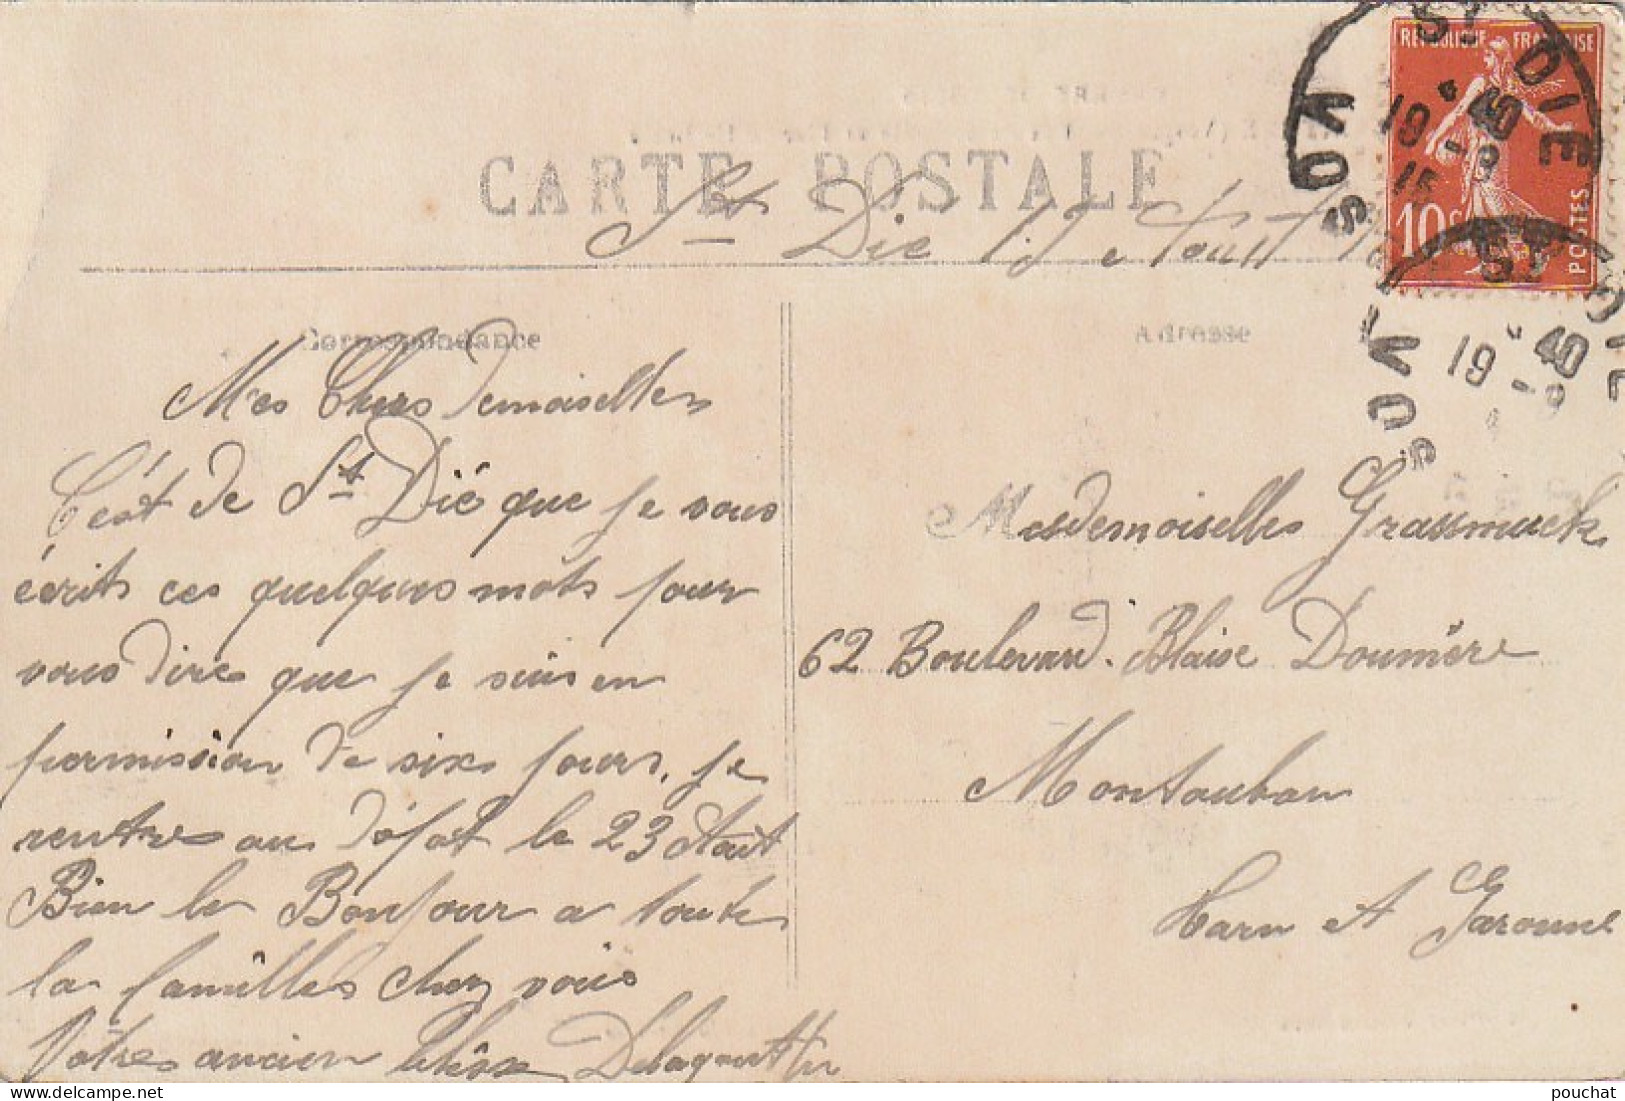 CARTE POSTALE
RÉPUBLIQUE FRANÇAISE
10c
POSTES
ST DIE
VOSGES
19 40
ST DIE
VOSGES
19 40
St Die 17 e Août
Correspondance
Adresse
Mes Chers Demoiselles
C'est de St Dié que je vous
écrits ces quelques mots pour
vous dire que je suis en
permission de six jours, je
rentre au dépôt le 23 Août
Bien le Bonjour a toute
la familles chez vous
Vôtre ancien
Mesdemoiselles Grassmuck
62 Boulevard Blaise Doumère
Montauban
Tarn et Garonne
pouchat